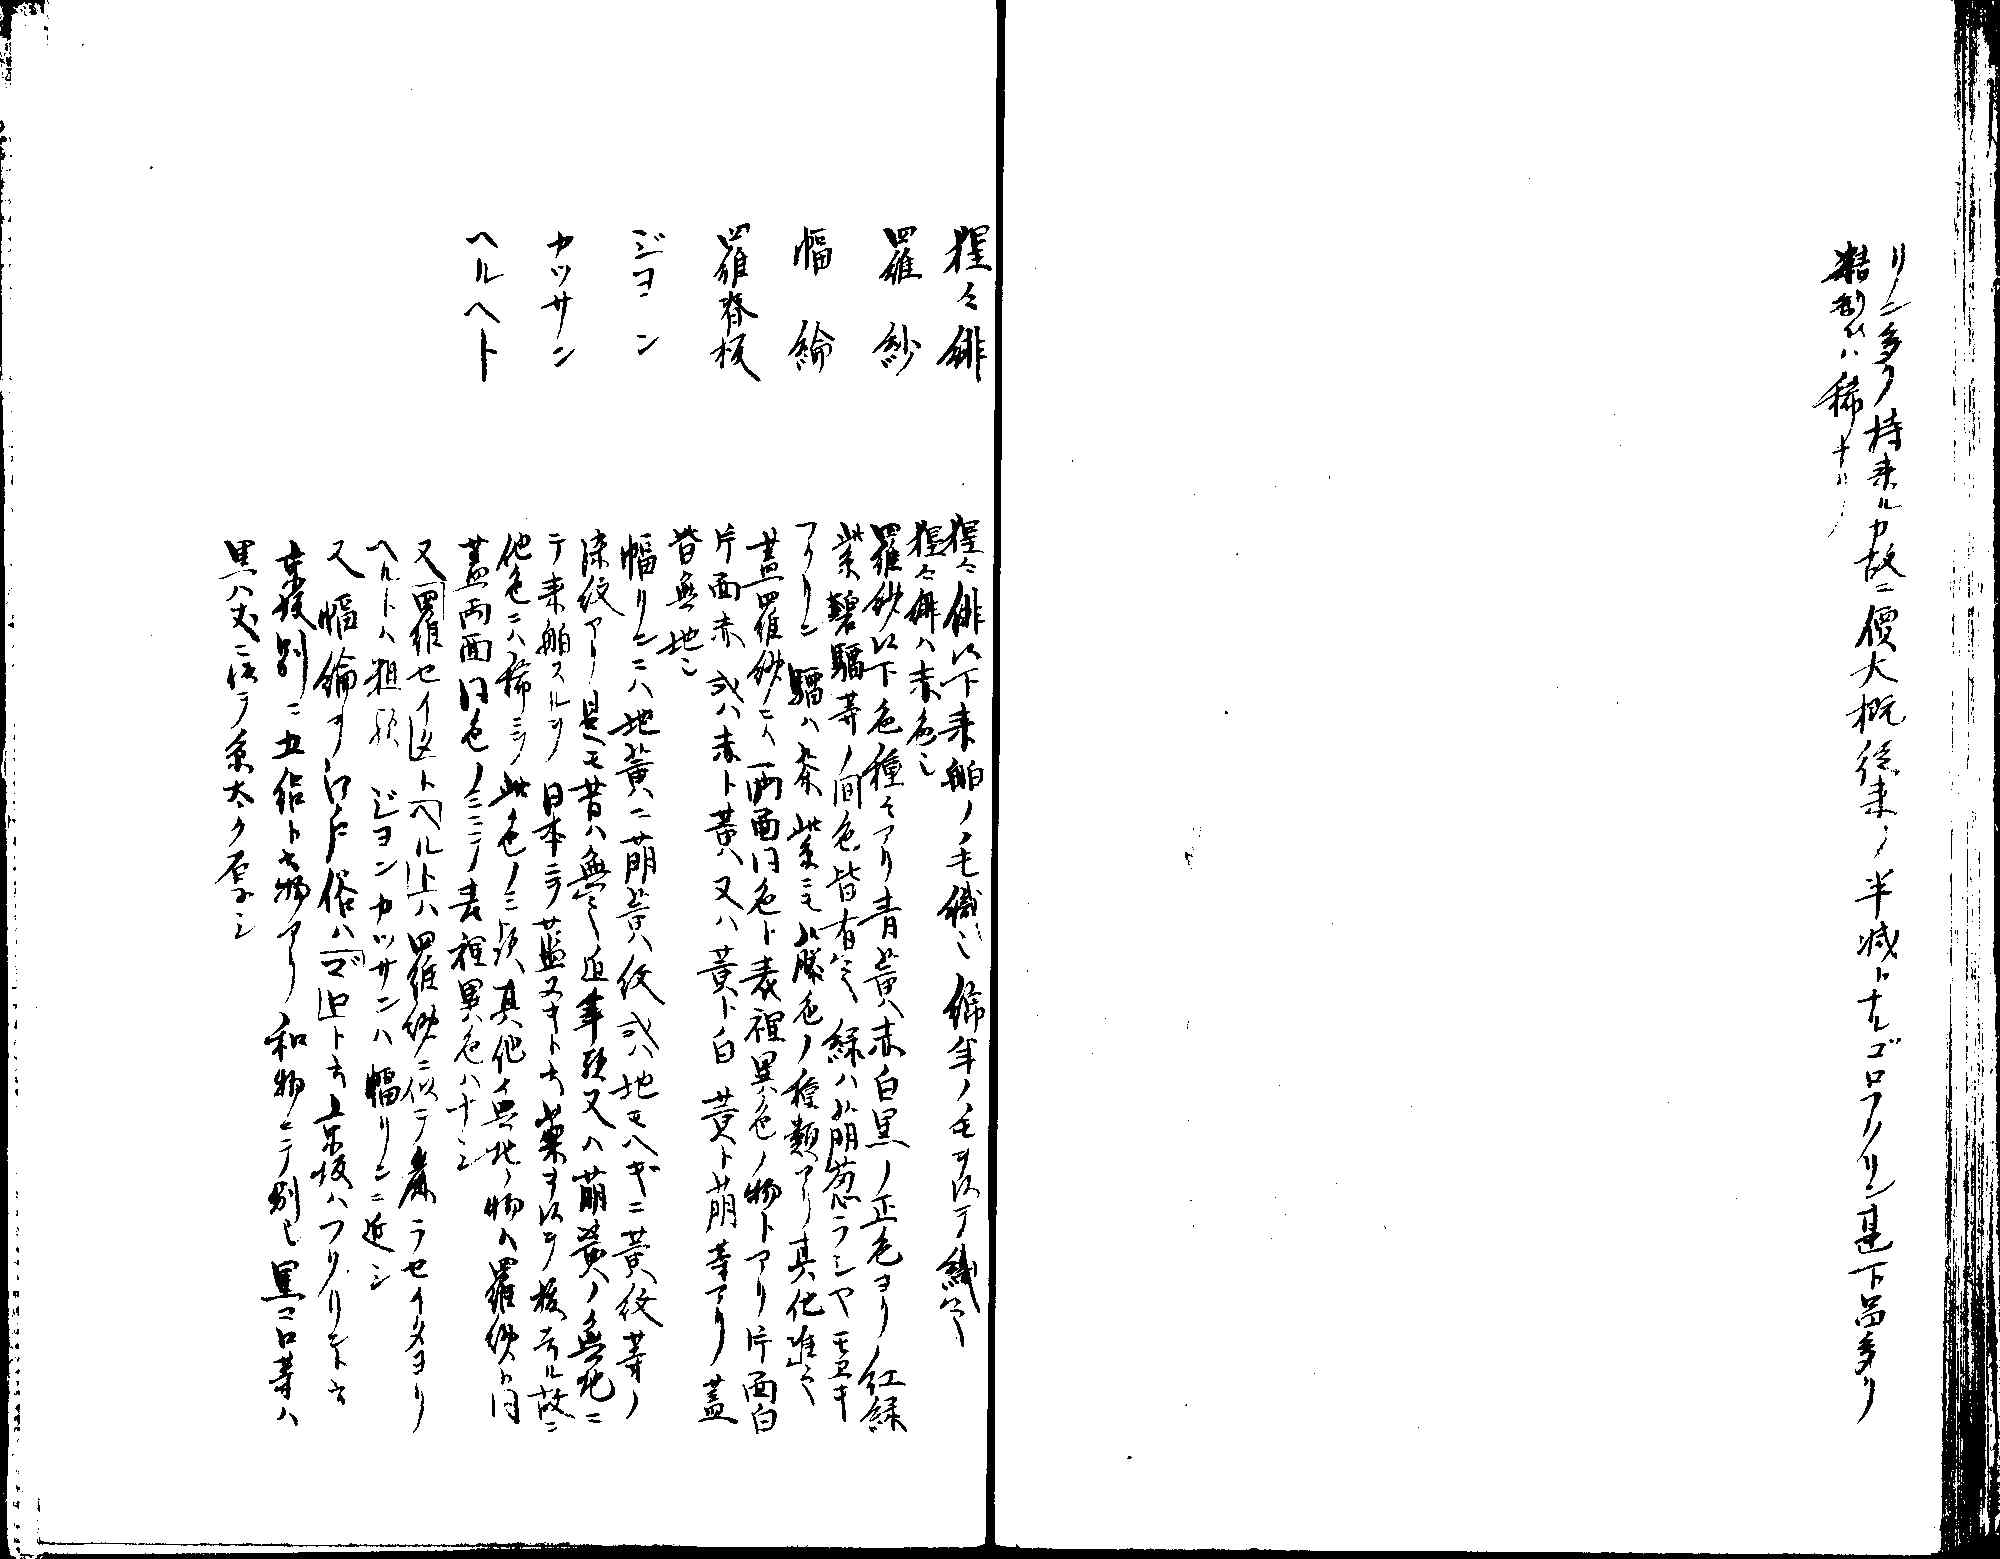 リン多ク持来ルカ故ニ價大概従来ノ半減トナルゴロフクリン甚下品多り
精製ハ稀ナリ
猩々緋
羅紗
幅綸
羅脊板
ジヨン
カツサン
ヘルヘト
猩々緋以下来舶ノ毛織也 綿羊ノ毛ヲ以テ織之
猩々緋ハ赤色也
羅紗以下色種々アリ青黄赤白黒ノ正色ヨリ紅緑
紫碧騮等ノ間色皆有之 緑ハ萠葱
フクリン 騮ハ茶 紫ニモ藤色ノ種類アリ其他准之
蓋羅紗ニハ両面同色ト表裡異色ノ物トアリ片面白
片面赤或ハ赤ト黄又ハ黄ト白 黄ト萠等アリ蓋
皆無地也
幅リンニハ地黄ニ萠黄紋或ハ地モヘギニ黄紋等ノ
染紋アリ是モ昔ハ無之近年 又ハ萠黄ノ無地ニ
テ来舶スルヲ日本ニテ藍スキト云 ヲ以テ 故ニ
他色ニハ稀ニテ此色ノミ 其他ハ無地ノ物ハ羅紗ト同
蓋両面同色ノミニノ表裡異色ハナシ
又羅セイタトヘルヘトハ羅紗ニ似テ麁ラセイタヨリ
ヘルトハ粗 ジヨンカツサンハ幅リンニ近シ
又幅綸ヲ江戸俗ハゴロト云京坂ハフクリント云
京坂別ニ五 ト云物アリ和物ニテ別也 黒ゴロ等ハ
黒八丈ニ似テ糸太ク厚シ